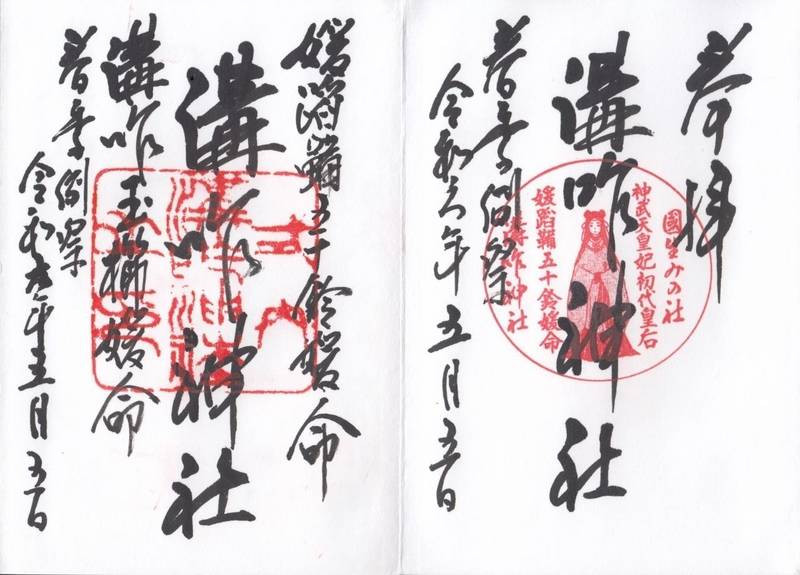 奉拝
溝咋神社
春季例祭
令和六年五月五日
國生みの社
神武天皇妃初代皇后
媛蹈鞴五十鈴媛命
溝咋神社
媛蹈鞴五十鈴媛命
溝咋神社
溝咋玉櫛媛命
春季例祭
令和六年五月五日